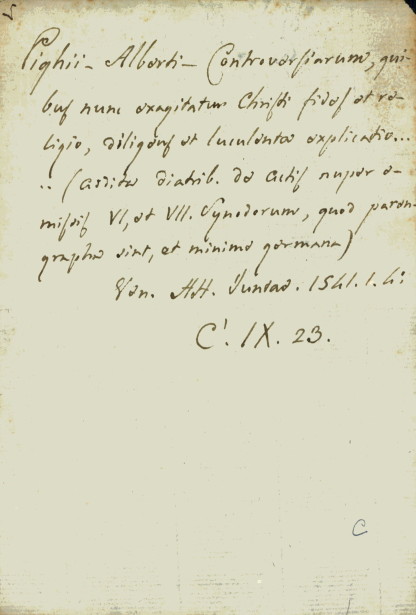 Pighii - Alberti - Controversiarum, qui-
bus nunc exagitatur Christi fides et re-
ligio, diligens et luculenta explicatio...
.. (addita diatrib. de actis nuper e-
missis VI, et VII. Synodorum, quod paren-
grapha sint, et minime germana)
Ven. HH. Juntae. 1541. 1. 4:
C'. IX. 23.
C